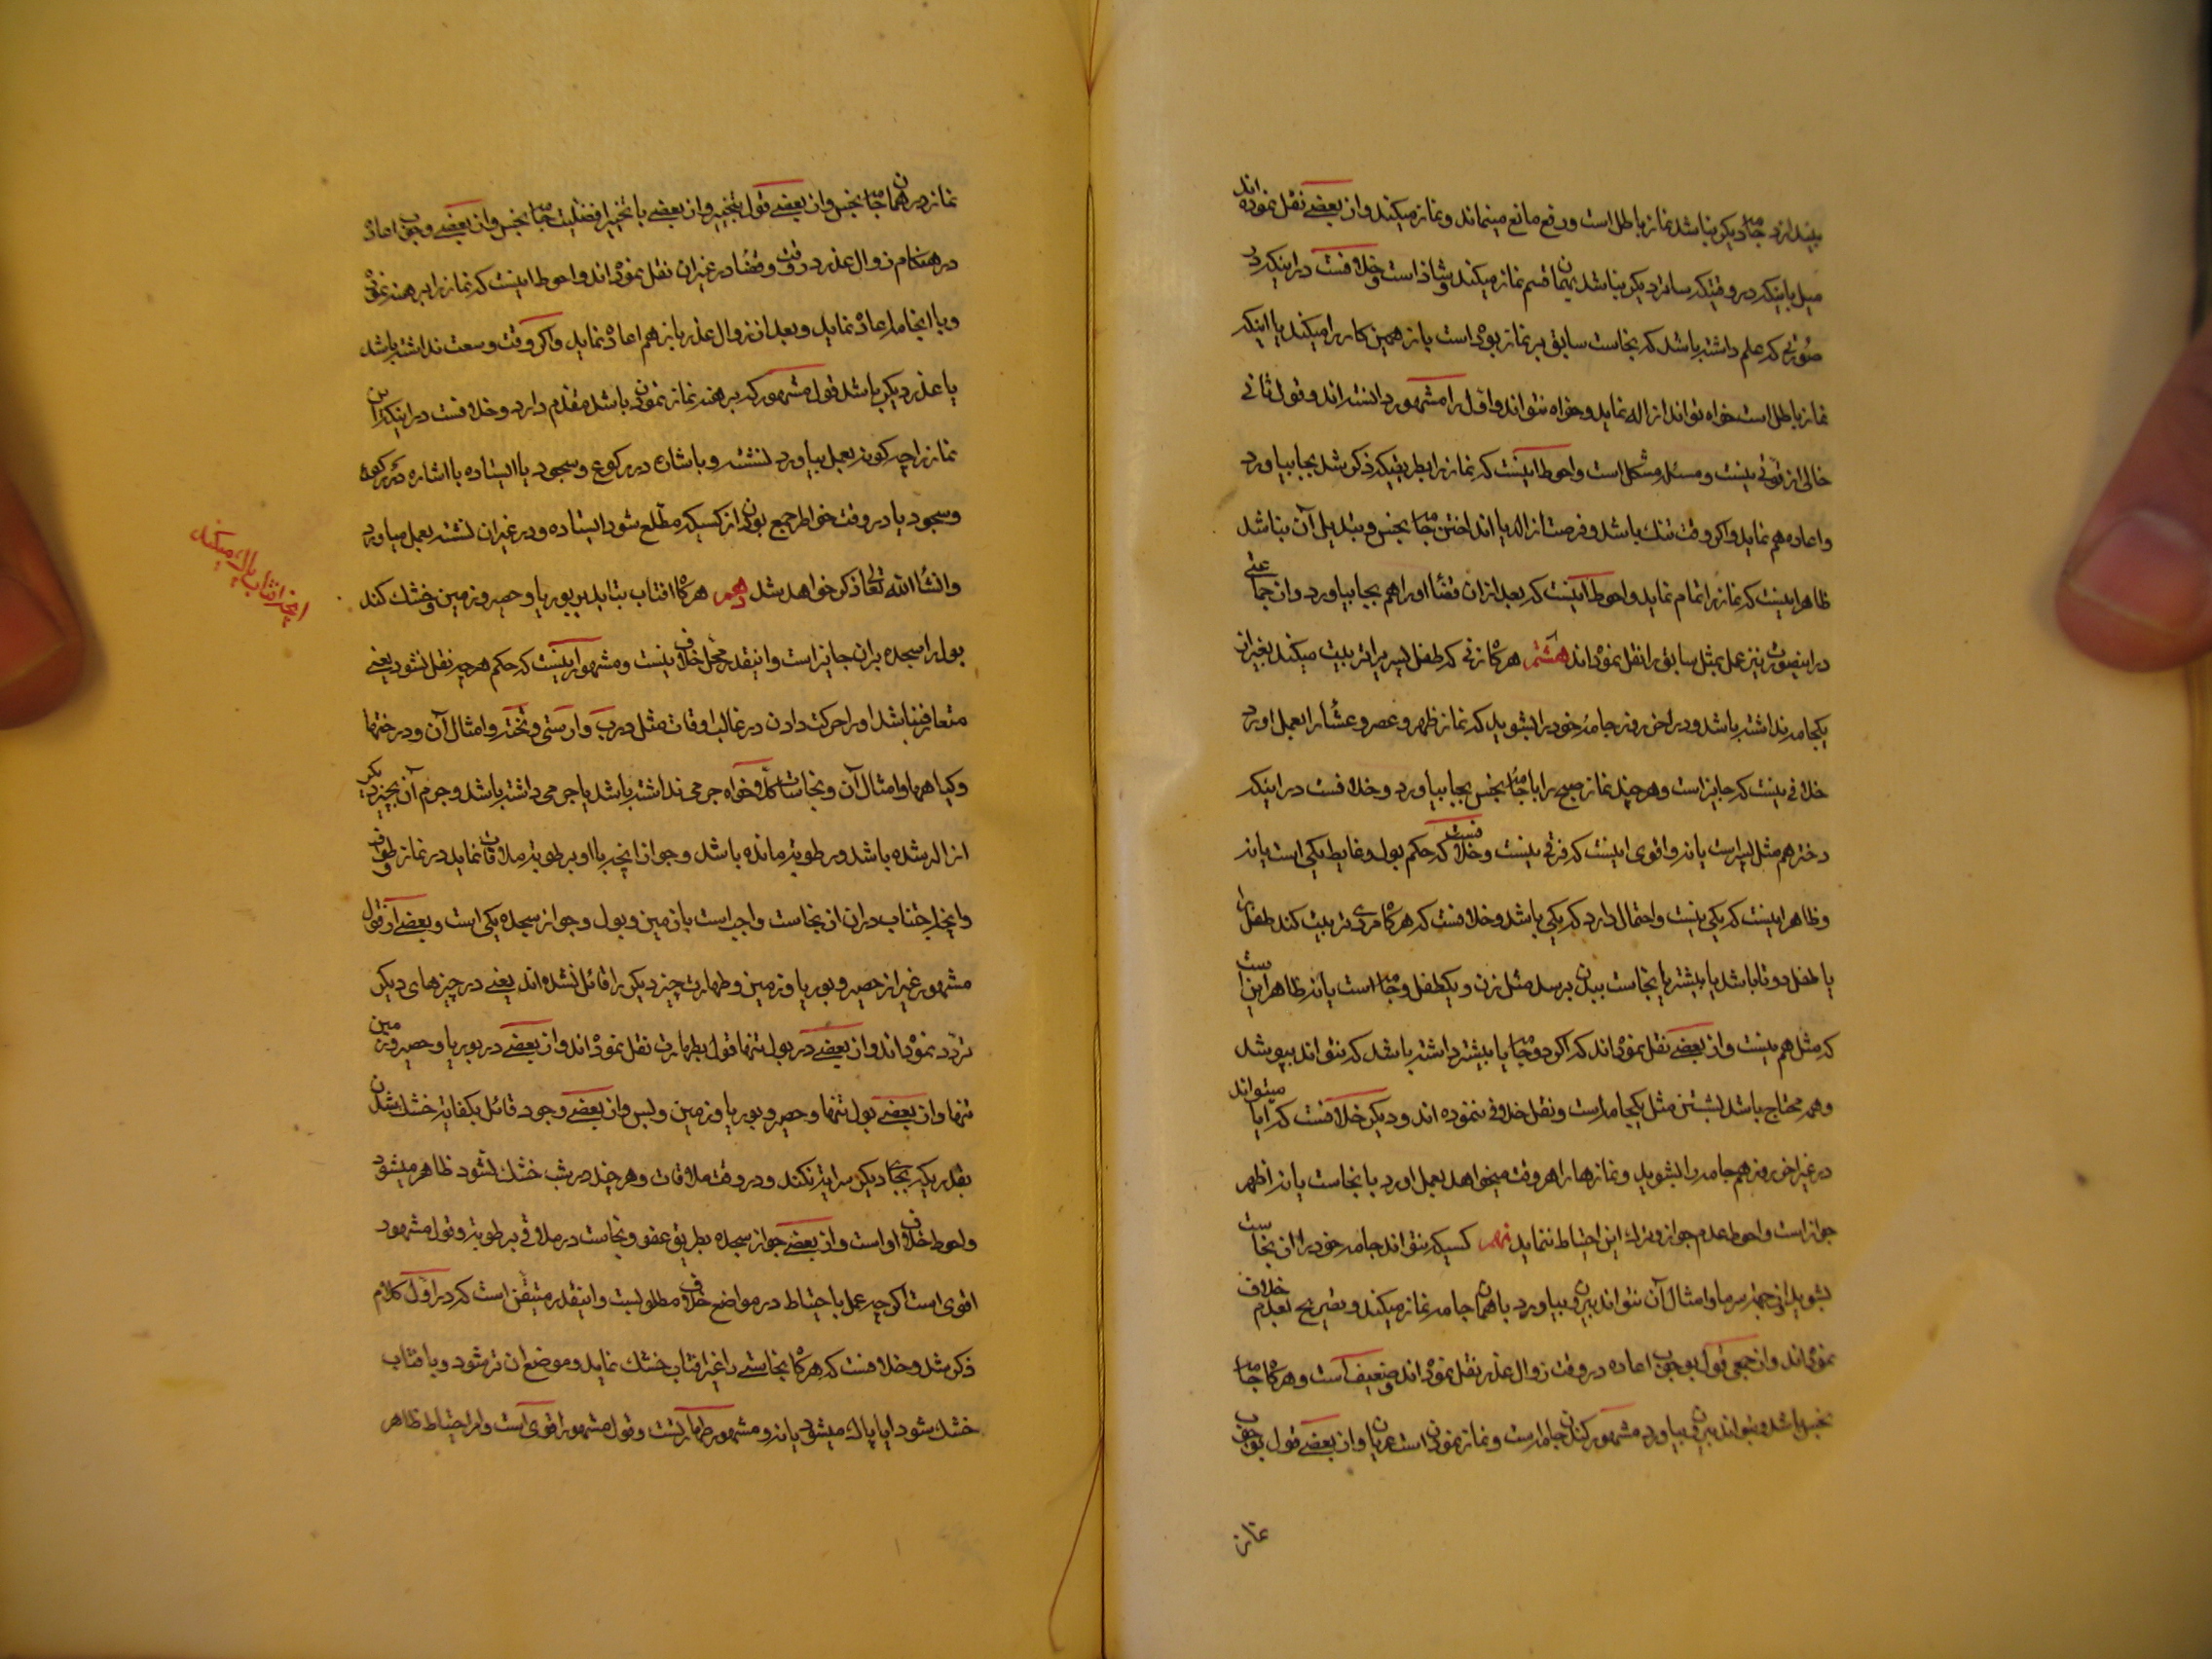 بیندازد جامه دیکر نباشد نماز باطل است و رفع مانع مینماند و نماز میکند و از بعضے نقل نموده اند
میل باینکه در وقتیکه ساتر دیکر نباشد بهمان قسم نماز میکند و شاذ است و خلافست در اینکه در
صورتے که علم داشته باشد که نجاست سابق بر نماز بوده است باز همین کار را میکند یا اینکه
نماز باطل است خواه تواند ازاله نماید و خواه نتواند و اول را مشهور دانسته اند و قول ثانے
خالی از قوتی نیست و مسئله مشکل است و احوط اینست که نماز را بطریقیکه ذکر شد بجا بیاورد
و اعاده هم نماید و اکر وقت تنک باشد و فرصت ازاله یا انداختن جامه نجس و تبدیل آن نباشد
ظاهر اینست که نماز را تمام نماید و احوط اینست که بعد از ان قضا او را هم بجا بیاورد و از جماعتے
در اینصورت نیز عمل بمثل سابق را نقل نموده اند هشتم هرکاه زنے که طفل پسر را تربیت میکند بغیر از
یکجامه نداشته باشد و در اخر روز جامه خود را بشوید که نماز ظهر و عصر و عشا را بعمل اورد
خلافی نیست که جایز است و هر چند نماز صبح را با جامه نجس بجا بیاورد و خلافست در اینکه
دختر هم مثل پسر است یا نه و اقوی اینست که فرقی نیست و خلافست که حکم بول و غایط یکی است یا نه
و ظاهر اینست که یکی نیست و احتمال دارد که یکی باشد و خلافست که هرکاه مردی تربیت کند طفل را
یا طفل دو تا باشد یا بیشتر یا نجاست ببدن برسد مثل زن و یکطفل و جامه است یا نه ظاهر این است
که مثل هم نیست و از بعضے نقل نموده اند که اکر دو جامه یا بیشتر داشته باشد که نتواند بپوشد
و همه محتاج باشد بشستن مثل یکجامه است و نقل خلافی ننموده اند و دیکر خلافست که ایا میتواند
در غیر اخر روز هم جامه را بشوید و نمازها را هر وقت میخواهد بعمل اورد با نجاست یا نه اظهر
جواز است و احوط عدم جواز و ترک این احتیاط ننماید نهم کسیکه نتواند جامه خود را از نجاست
بشوید از جهة سرما و امثال آن نتواند بیرون بیاورد با همان جامه نماز میکند و تصریح بعدم خلاف
نموده اند و از جمعی قول بوجوب اعاده در وقت زوال عذر نقل نموده اند و ضعیف است و هرکاه جامه
نجس باشد و بتواند بیرون بیاورد مشهور کندن جامه است و نماز نمودن است عریان و از بعضے قول بوجوب
نماز
نماز در همان جامه نجس و از بعضے قول بتخییر و از بعضے با تخییر افضلیت جامه نجس و از بعضے وجوب اعاده
در هنکام زوال عذر در وقت و قضا در غیر ان نقل نموده اند و احوط اینست که نماز را برهنه نموده
و با انجامه اعاده نماید و بعد از زوال عذر باز هم اعاده نماید و اکر وقت وسعت نداشته باشد
یا عذر دیکر باشد قول مشهور که برهنه نماز نمودن باشد مقدم دارد و خلافست در اینکه این
نماز را چه کونه بعمل بیاورد نشسته و باشاره در رکوع و سجود یا ایستاده با اشاره در رکوع
و سجود یا در وقت خواطر جمع بودن از کسیکه مطلع شود ایستاده و در غیر ان نشسته بعمل میاورد
و انشاالله تعالی ذکر خواهد شد دهم هرکاه افتاب بتابد بر بوریا و حصیر و زمین و خشک کند
بول را سجده بر ان جایز است و اینقدر محل خلاف نیست و مشهور اینست که حکم هر چه نقل نشود یعنے
متعارف نباشد او را حرکت دادن در غالب اوقات مثل درب وارسی و تخته و امثال آن و درختها
و کیاهها و امثال آن و نجاسات کلا و خواه جرمی نداشته باشد یا جرمی داشته باشد و جرم آن بچیز دیکر
ازاله شده باشد و رطوبتے مانده باشد و جواز انچه با او برطوبتے ملاقات نماید در نماز و طواف
و انچه اجتناب در ان از نجاست واجب است با زمین و بول و جواز سجده یکی است و بعضے از قول
مشهور غیر از حصیر و بوریا و زمین و طهارت چیز دیکر را قائل نشده اند یعنے در چیز های دیکر
تردد نموده اند و از بعضے در بول تنها قول بطهارت نقل نموده اند و از بعضے در بوریا و حصیر و زمین
تنها و از بعضے بول تنها و حصیر و بوریا و زمین و بس و از بعضے وجود قائل بکفایت خشک شدن
بقدریکه بجای دیکر سرایت نکند و در وقت ملاقات و هر چند در شب خشک نشود ظاهر میشود
و احوط خلاف او است و از بعضے جواز سجده بطریق عفو و نجاست در ملاقی برطوبتے و قول مشهور
اقوی است اکر چه عمل باحتیاط در مواضع خلاف مطلوبست و اینقدر متیقن است که در اول کلام
ذکر شد و خلافست که هرکاه نجاستے را غیر افتاب خشک نماید و موضع ان تر شود و با فتاب
خشک شود ایا پاک میشود یا نه و مشهور طهارتست و قول مشهور اقوی است و امر احتیاط ظاهر